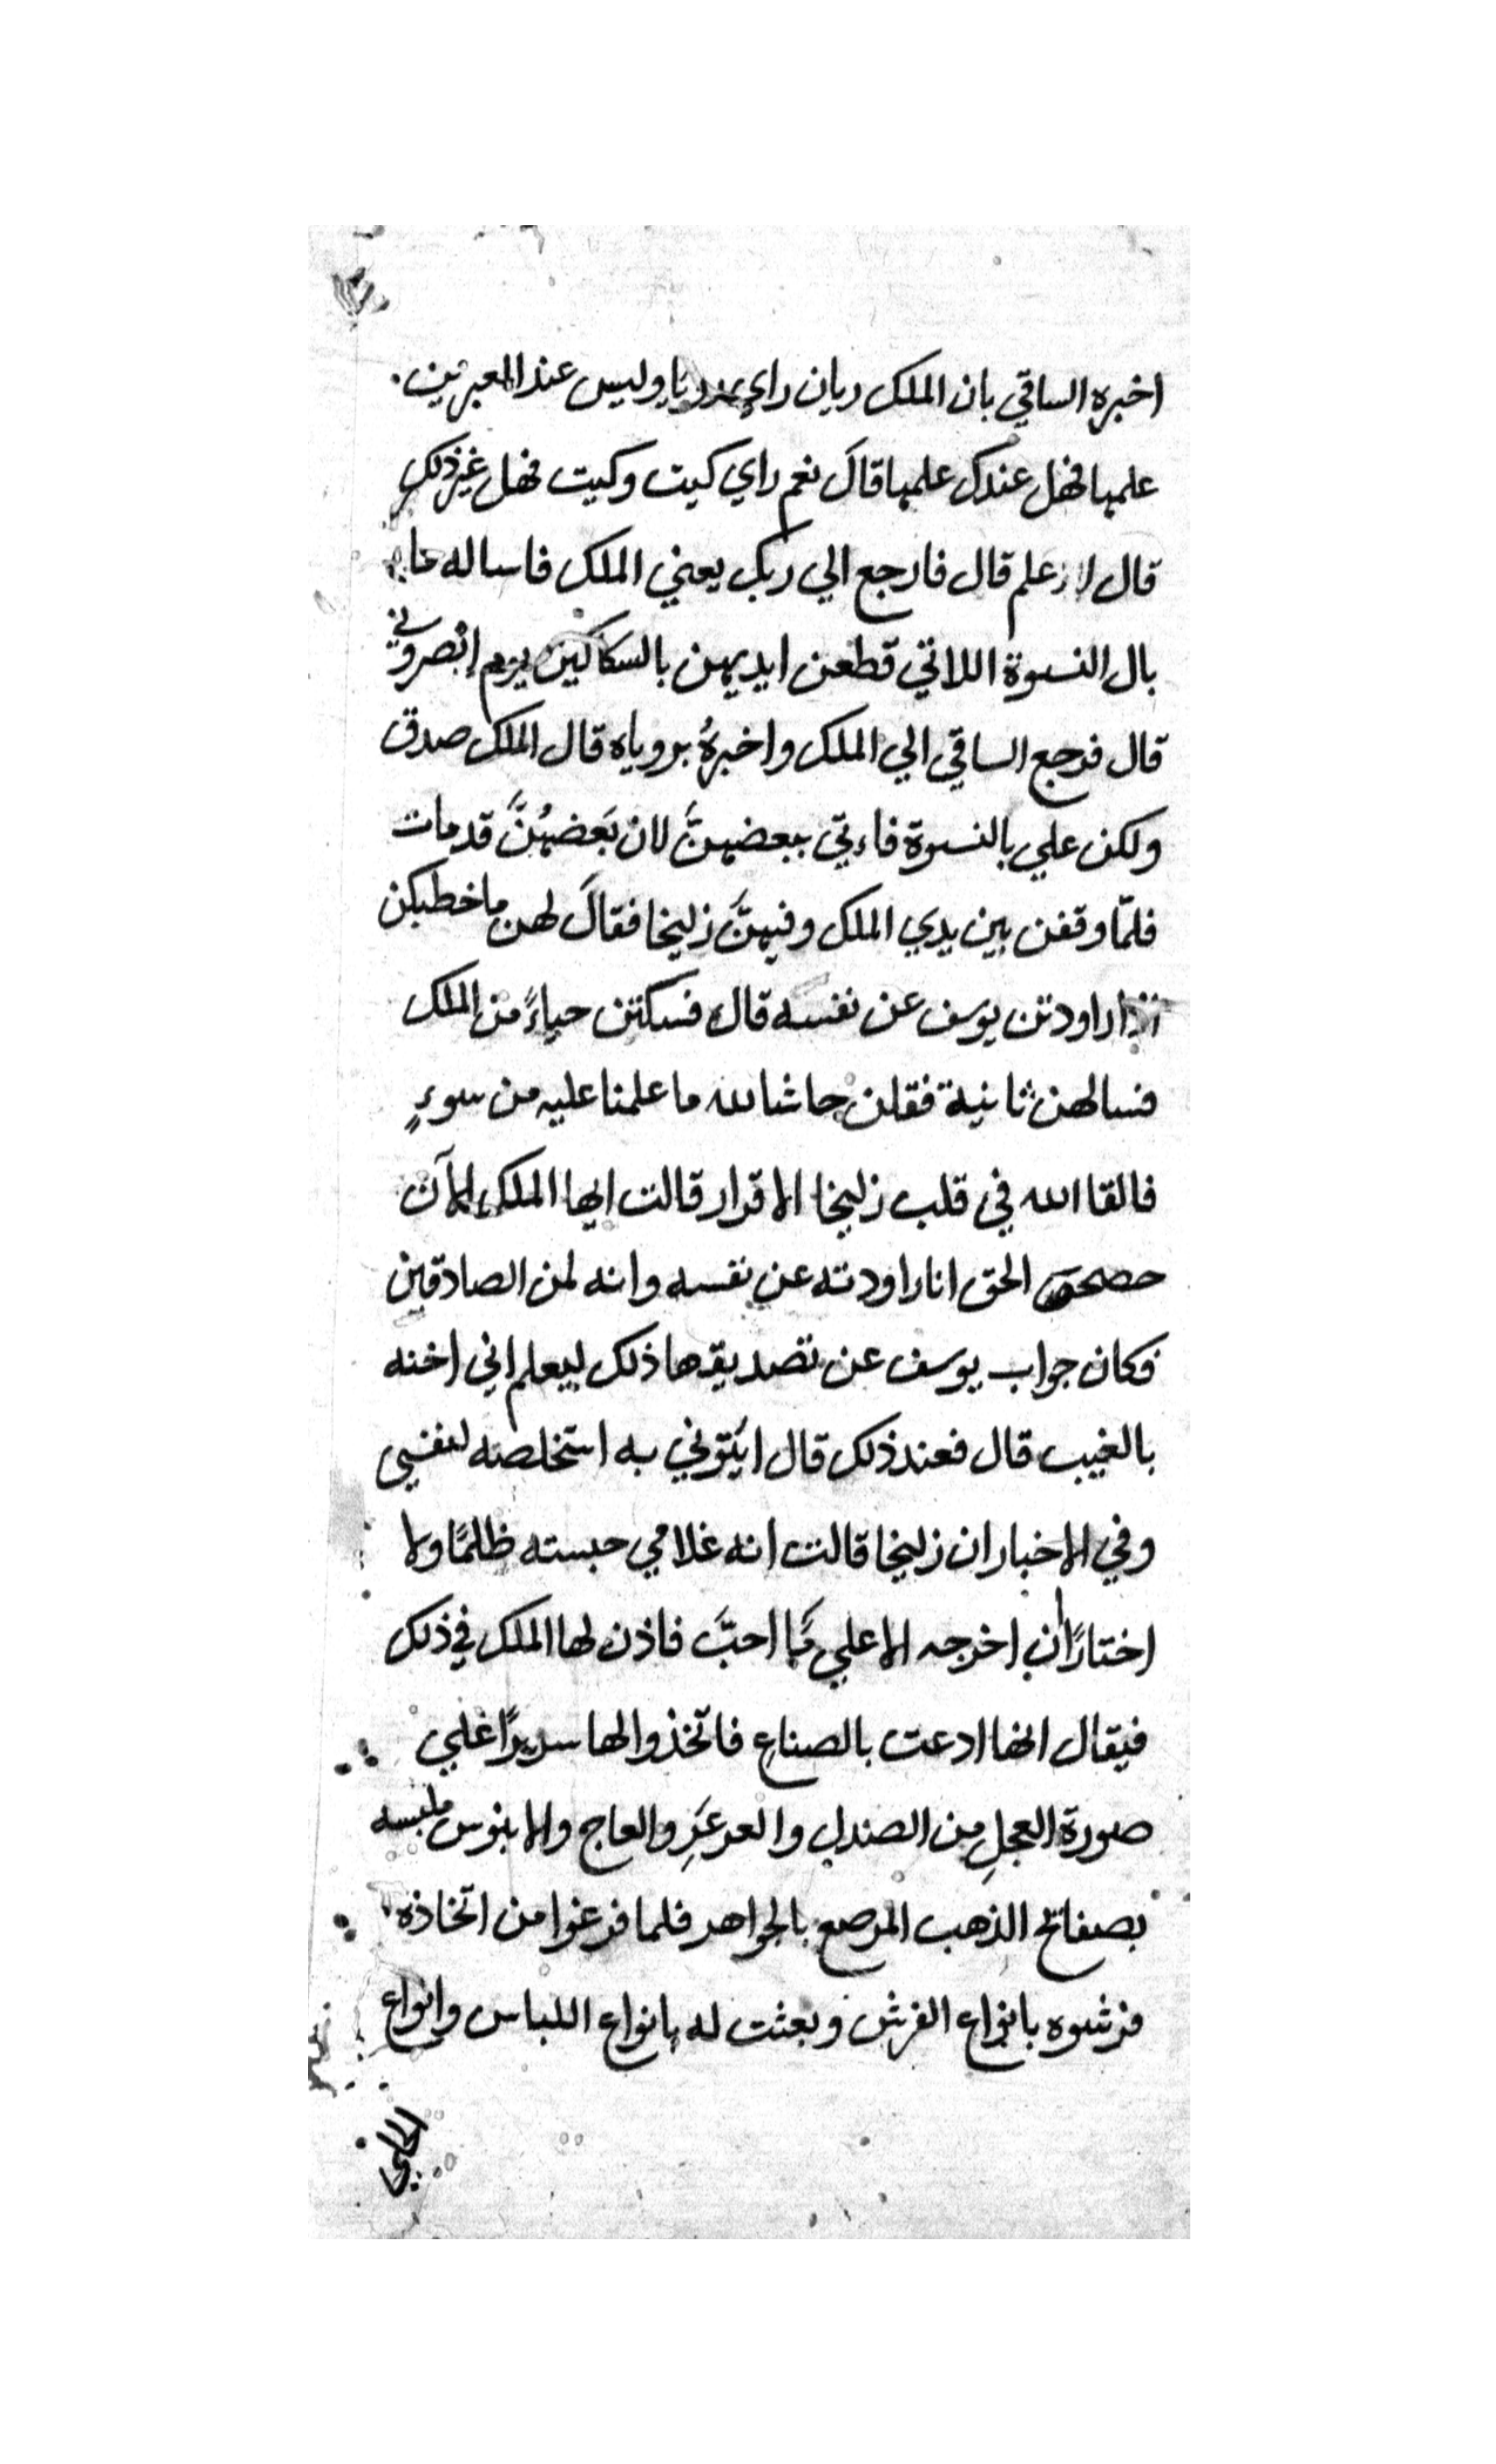 اخبره الساقي بان الملك ريان راي رويا وليس عند المعبرين.
علمها فهل عندك علمها قالَ نعم راي كيت وكيت فهل غير ذلك
قال لا علم قال فارجع الي ربك يعني الملك فاساله ما
بال النسوة اللاتي قطعن ايديهن بالسكاكين يوم ابصروني
قال فرجع الساقي الي الملك واخبرهُ بروياه قال الملك صدق
ولكن علي بالنسوة فاءتي ببعضهنَّ لان بَعضهُنَّ قد مات
فلمّا وقفن بين يدي الملك وفيهنَّ زليخا فقالَ لهن ما خطبكن
اذ راودتن يوسف عن نفسه قال فسكتن حياءً من الملك
فسالهن ثانية فقلن حاشا لله ما علمنا عليه من سوءٍ
فالقا الله في قلب زليخا الاقرار قالت ايها الملك الآن
حصحص الحق انا راودته عن نفسه وانه لمن الصادقين
فكان جواب يوسف عن تصديقها ذلك ليعلم اني اخنه
بالغيب قال فعند ذلك قال ايتوني به استخلصه لنفسي
وفي الاخبار ان زليخا قالت انه غلامي حبسته ظلمًا ولا
اختارًا ان اخرجه الا علي كَما احبَّ فاذن لها الملك في ذلك
فيقال انها ادعت بالصناع فاتخذوا لها سريرًا علي
صورة العجلِ من الصندل والعرعَرِ والعاج والابنوس ملبسه
بصفائح الذهب المرصع بالجواهر فلما فرغوا من اتخاذه
فرشوه بانواع الفرش وبعثت له بانواع اللباس وانواع
الحلي